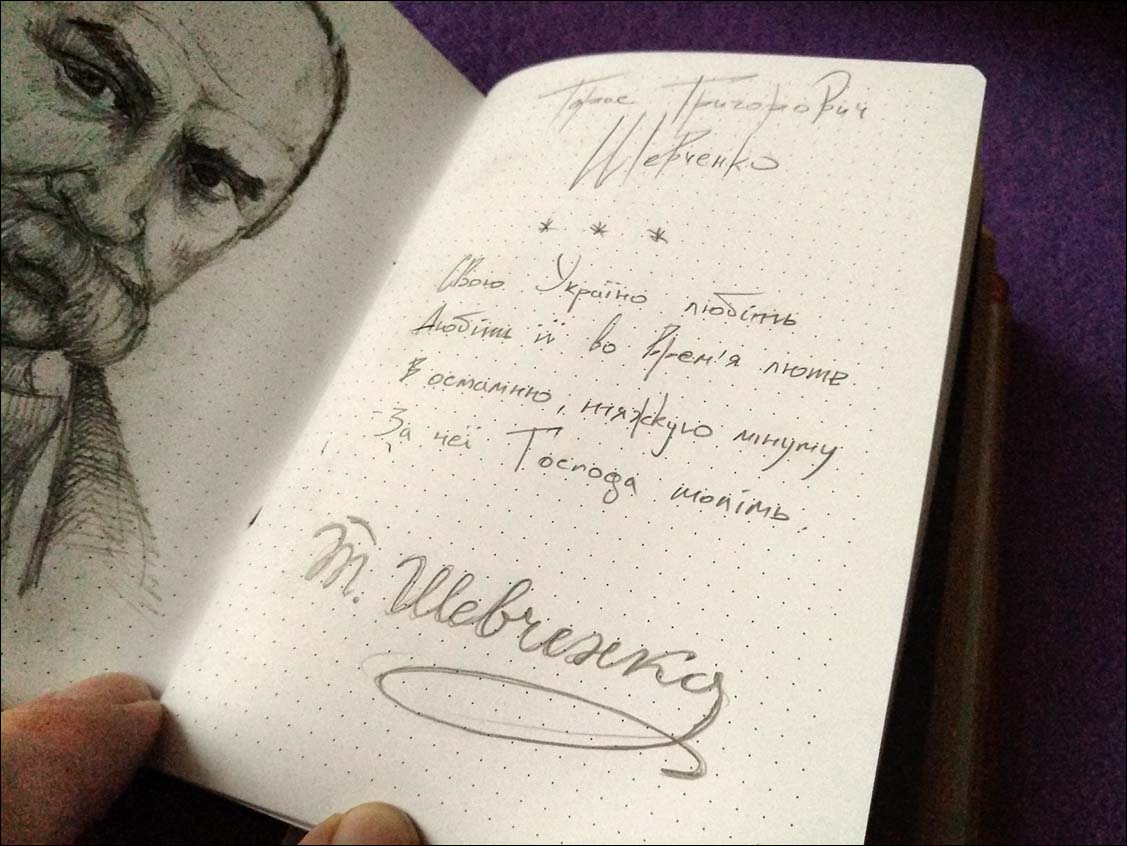 Тарас Григорович
Шевченко
* * *
Свою Україно любіть
Любіть її во врем'я люте
В остатню, тяжкую мінуту
За неї Господа моліть.
Т. Шевченко